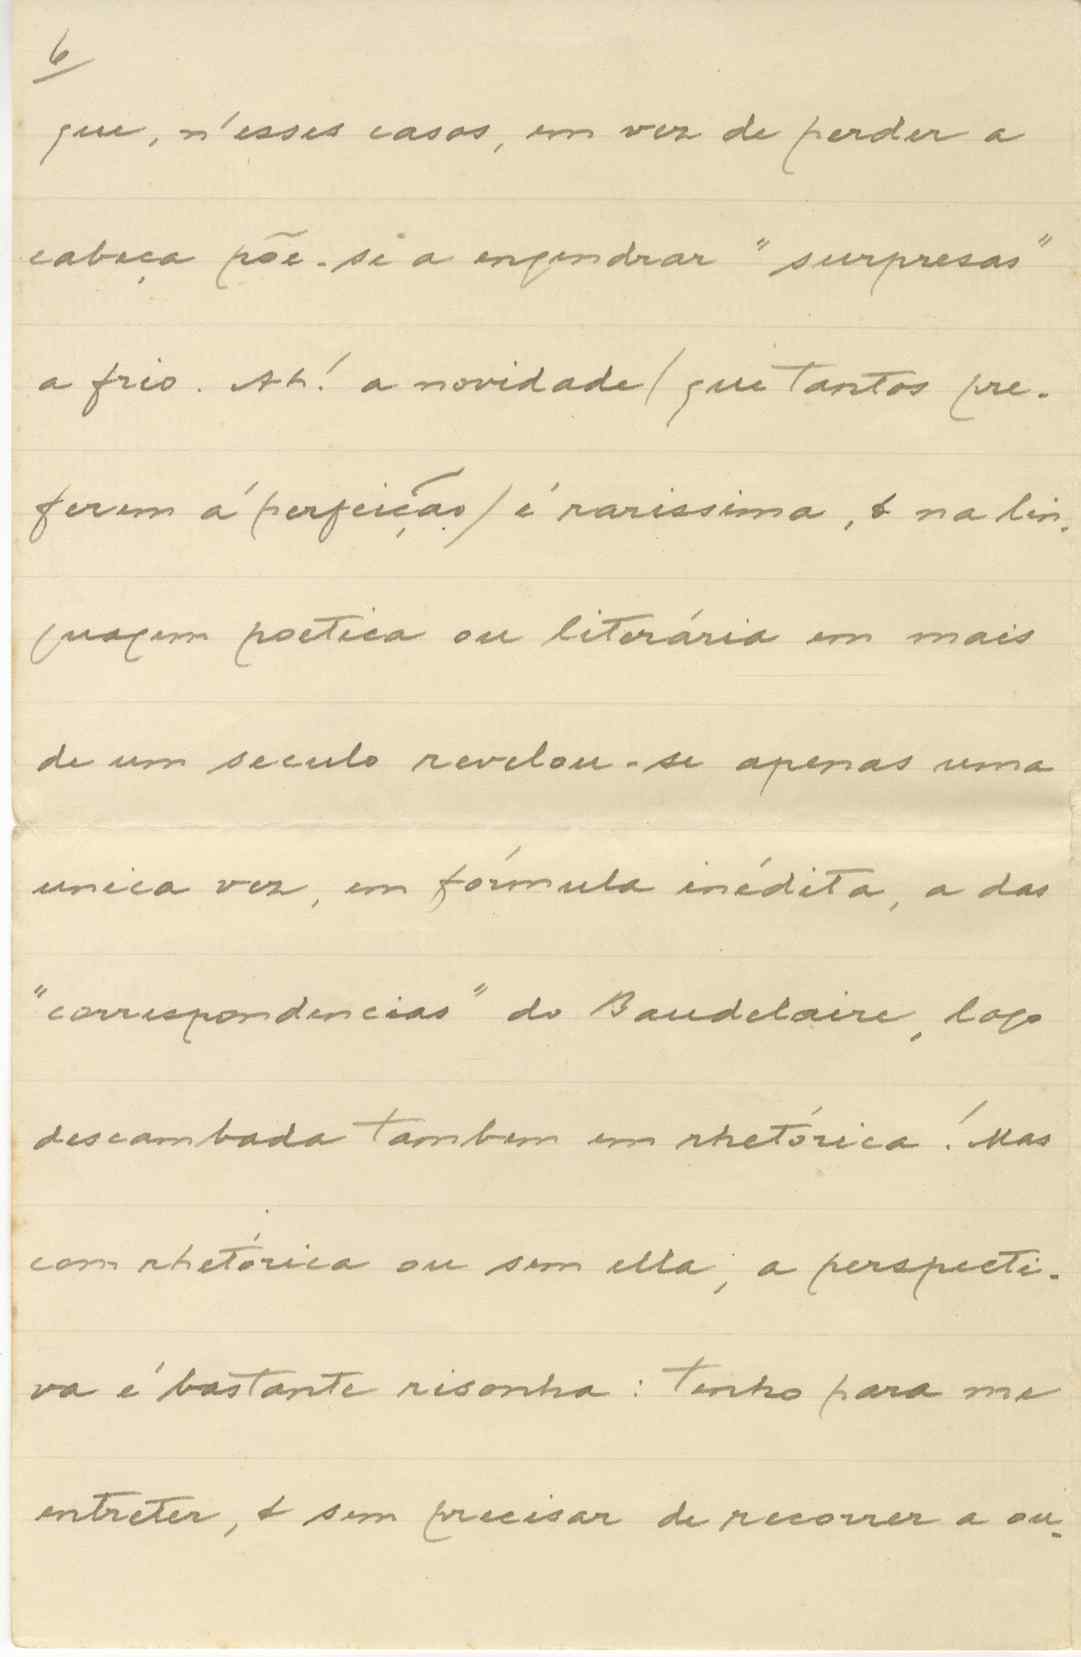 6
que, n'esses casos, em vez de perder a
cabeça põe-se a engendrar "surpresas"
a frio. Ah! a novidade/que tantos pre-
ferem á perfeição/é rarissima, & na lin-
guagem poetica ou literária em mais
de um seculo revelou-se apenas uma
unica vez, em fórmula inédita, a das
"correspondencias" do Baudelaire, logo
descambada tambem em rhetórica! Mas
com rhetórica ou sem ella, a perspecti-
va é bastante risonha: tenho para me
entreter, & sem precisar de recorrer a ou-